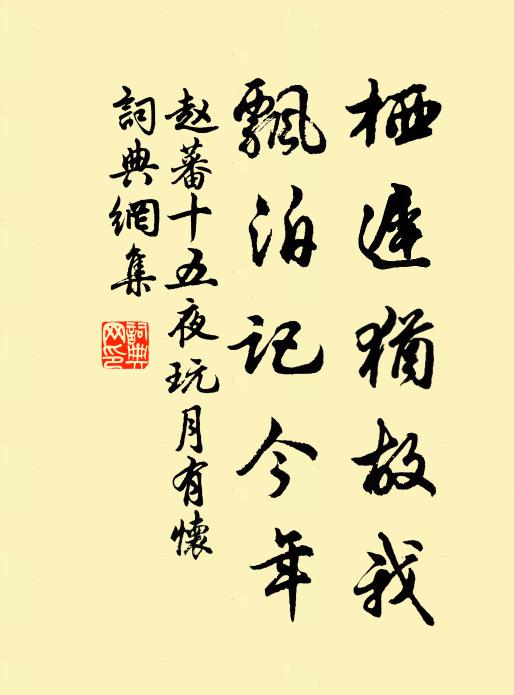 栖遲猶故我
飄泊記今年
赵蕃十五夜玩月有懷
詞典網集
詞典網印